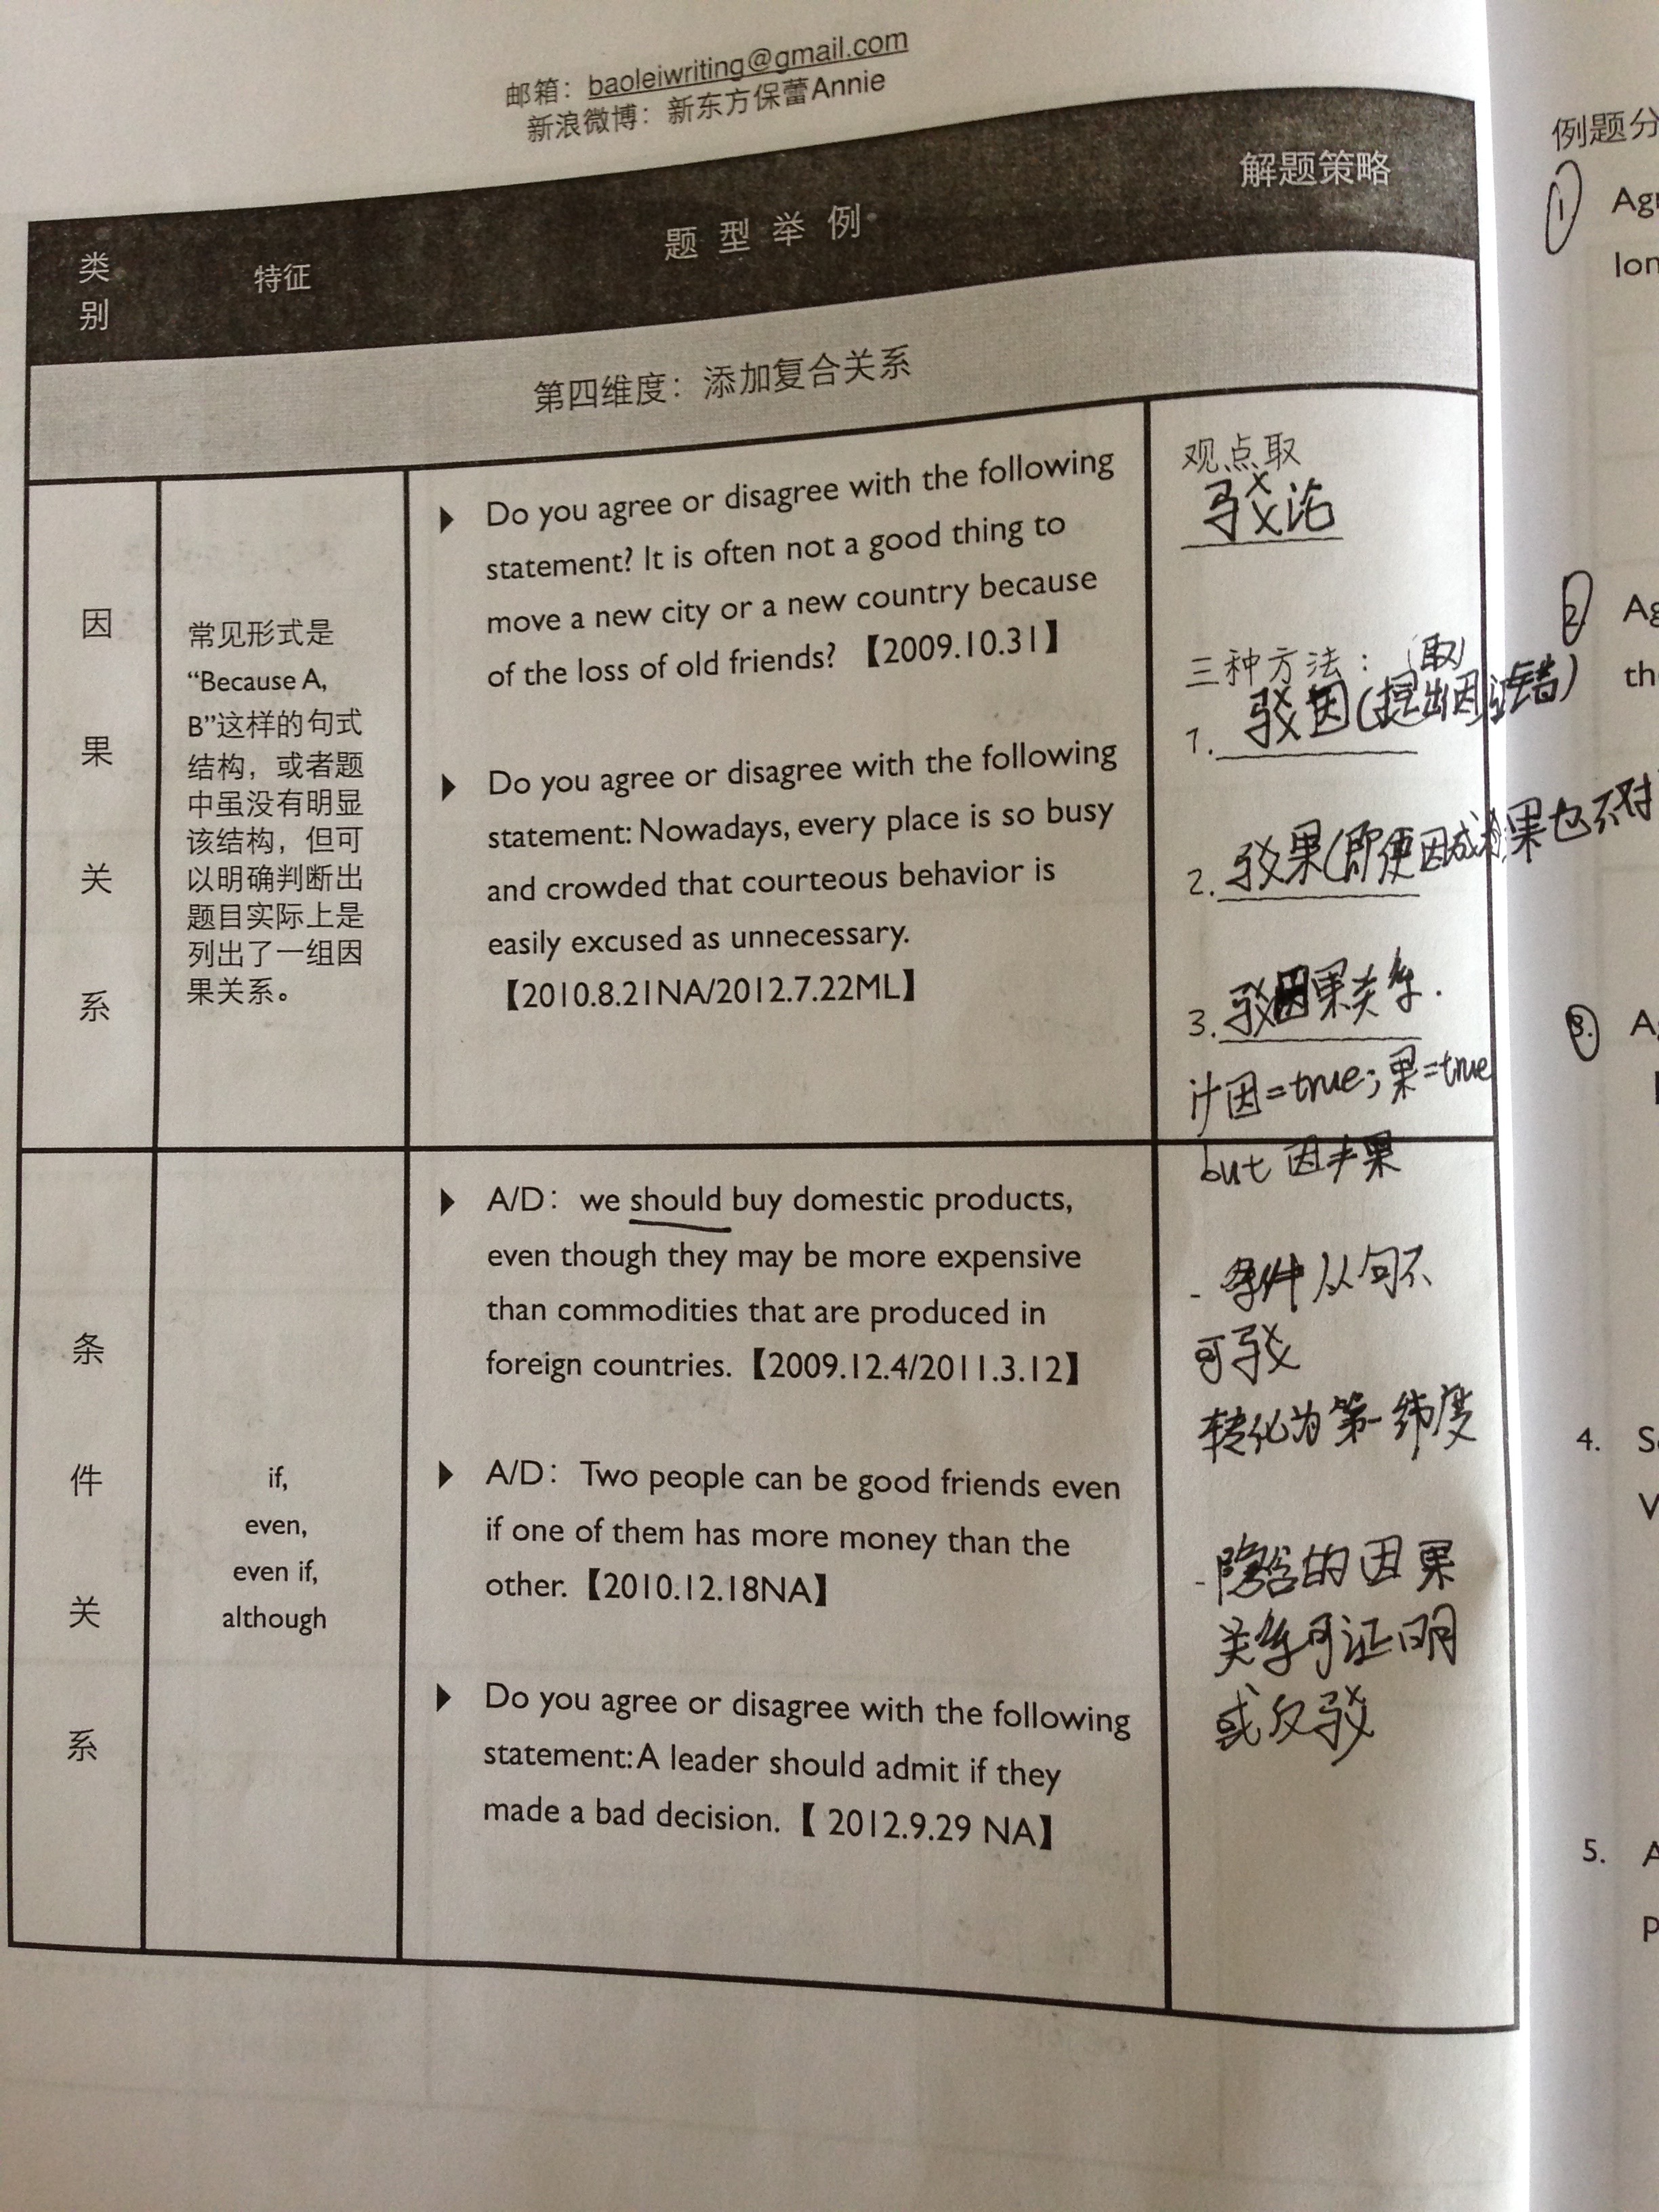 邮箱：baoleiwriting@gmail.com
新浪微博：新东方保蕾Annie
类别
特征
题型举例
解题策略
第四维度：添加复合关系
因果关系
常见形式是
“Because A,
B”这样的句式
结构，或者题
中虽没有明显
该结构，但可
以明确判断出
题目实际上是
列出了一组因
果关系。
Do you agree or disagree with the following
statement? It is often not a good thing to
move a new city or a new country because
of the loss of old friends? 【2009.10.31】
Do you agree or disagree with the following
statement: Nowadays, every place is so busy
and crowded that courteous behavior is
easily excused as unnecessary.
【2010.8.21NA/2012.7.22ML】
观点取
驳论
三种方法：(取)
1. 驳因(提出因
2. 驳果(即使因成 果也不对
3. 驳因果关系.
因=true; 果=true
but 因≠果
条件关系
if,
even,
even if,
although
A/D： we should buy domestic products,
even though they may be more expensive
than commodities that are produced in
foreign countries.【2009.12.4/2011.3.12】
A/D： Two people can be good friends even
if one of them has more money than the
other.【2010.12.18NA】
Do you agree or disagree with the following
statement: A leader should admit if they
made a bad decision.【 2012.9.29 NA】
- 条件从句不
可驳
转化为第一纬度
- 隐含的因果
关系可证明
或反驳
例题分
1 Ag
lon
2 Ag
the
3. A
4. S
V
5. A
P